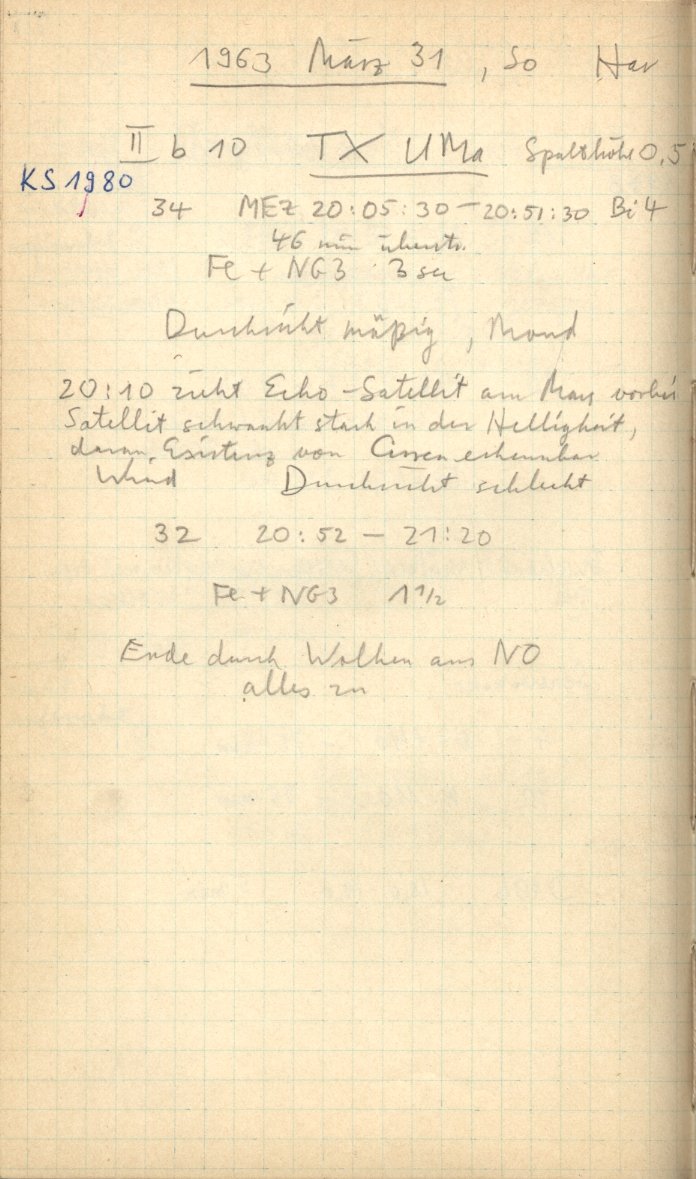 1963 März 31, So Har
II b 10 TX UMa Spalthöhe 0,5
KS 1980
34 MEZ 20:05:30 – 20:51:30 Bi 4
46 min überstr.
Fe + NG3 3 sec
Durchsicht mäßig, Mond
20:10 zieht Echo-Satellit am Mars vorbei
Satellit schwankt stark in der Helligkeit,
daran Existenz von Cirren erkennbar
Wind Durchsicht schlecht
32 20:52 – 21:20
Fe + NG3 1 1/2
Ende durch Wolken aus NO
alles zu